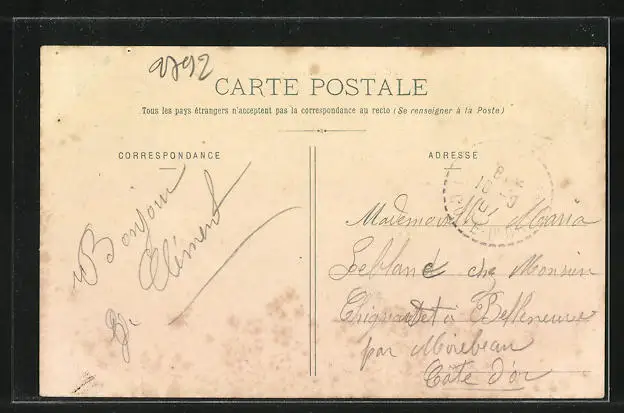 9792
CARTE POSTALE
Tous les pays étrangers n'acceptent pas la correspondance au recto (Se renseigner à la Poste)
CORRESPONDANCE
ADRESSE
Bonjour
Clément
Mademoiselle Maria
Leblanc chez Monsieur
à Belleneuve
par Mirebeau
Côte d'or